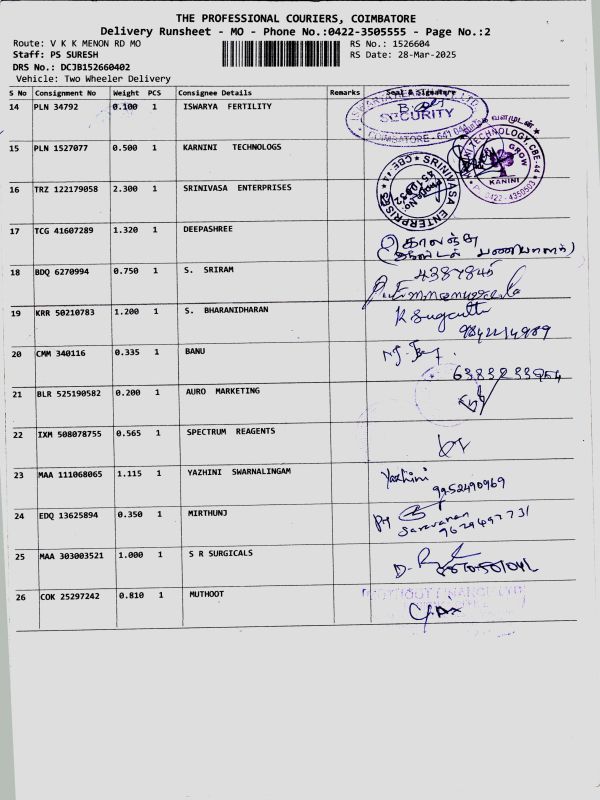 THE PROFESSIONAL COURIERS, COIMBATORE
Delivery Runsheet - MO - Phone No.:0422-3505555 - Page No.:2
Route: V K K MENON RD MO RS No.: 1526604
Staff: PS SURESH RS Date: 28-Mar-2025
DRS No.: DCJB152660402
Vehicle: Two Wheeler Delivery
S No Consignment No Weight PCS Consignee Details Remarks Seal & Signature
14 PLN 34792 0.100 1 ISWARYA FERTILITY
SECURITY
COIMBATORE - 641 044
15 PLN 1527077 0.500 1 KARNINI TECHNOLOGS
TECHNOLOGY, CBE-44
GROW
KANINI
0422 - 4350503
16 TRZ 122179058 2.300 1 SRINIVASA ENTERPRISES
SRINIVASA ENTERPRISES CBE 44
17 TCG 41607289 1.320 1 DEEPASHREE
18 BDQ 6270994 0.750 1 S. SRIRAM
4387845
19 KRR 50210783 1.200 1 S. BHARANIDHARAN
20 CMM 340116 0.335 1 BANU
6383233954
21 BLR 525190582 0.200 1 AURO MARKETING
22 IXM 508078755 0.565 1 SPECTRUM REAGENTS
23 MAA 111068065 1.115 1 YAZHINI SWARNALINGAM
Yazhini
9952490969
24 EDQ 13625894 0.350 1 MIRTHUNJ
Saravanan
9629497731
25 MAA 303003521 1.000 1 S R SURGICALS
26 COK 25297242 0.810 1 MUTHOOT
MUTHOOT FINANCE LTD